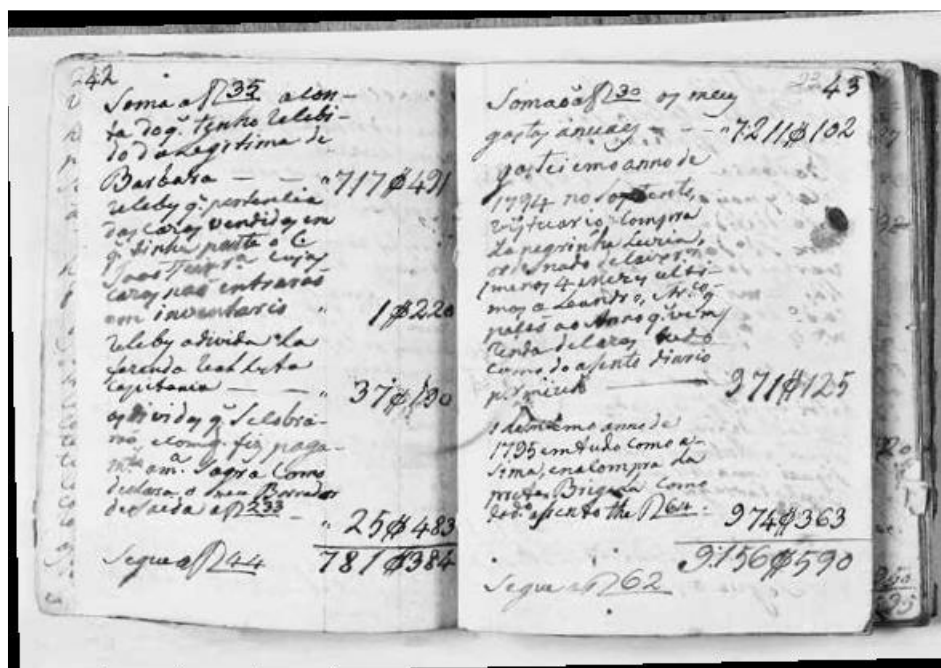 242
Soma a f 35 a con-
ta do q. tenho Recebi-
do da Legitima de
Barbara — — " 717$491
Reseby q. pertencia
das cazas vendidas em
q. tinha parte o C.
João Teixr.ª cujas
cazas naõ entraraõ
em inventario " 1$220
Reseby a divida da
fazenda Real desta
Capitania — — " 37$190
as dividas q. se cobra-
raõ, e com q. fiz paga-
m.to a m.ª Sogra como
declara o meu Borrador
de saida a f 233 — " 25$483
781$384
Segue a f 44
43
Somaõ a f 30 os meus
gastos anuaes — — " 7211$102
gastei em o anno de
1794 no sustento,
vistuario, compra
da negrinha Luzia,
ordenado
menos 4 mezes ulti-
mos a Leandro,
ao Anno q. vem,
Renda de cazas tudo
como do asento diario
— 971$125
Idem em o anno de
1795 em tudo como a-
sima, e na compra da
preta Brigida como
do d.º asento the f 64 - 974$363
9:156$590
Segue a f 62